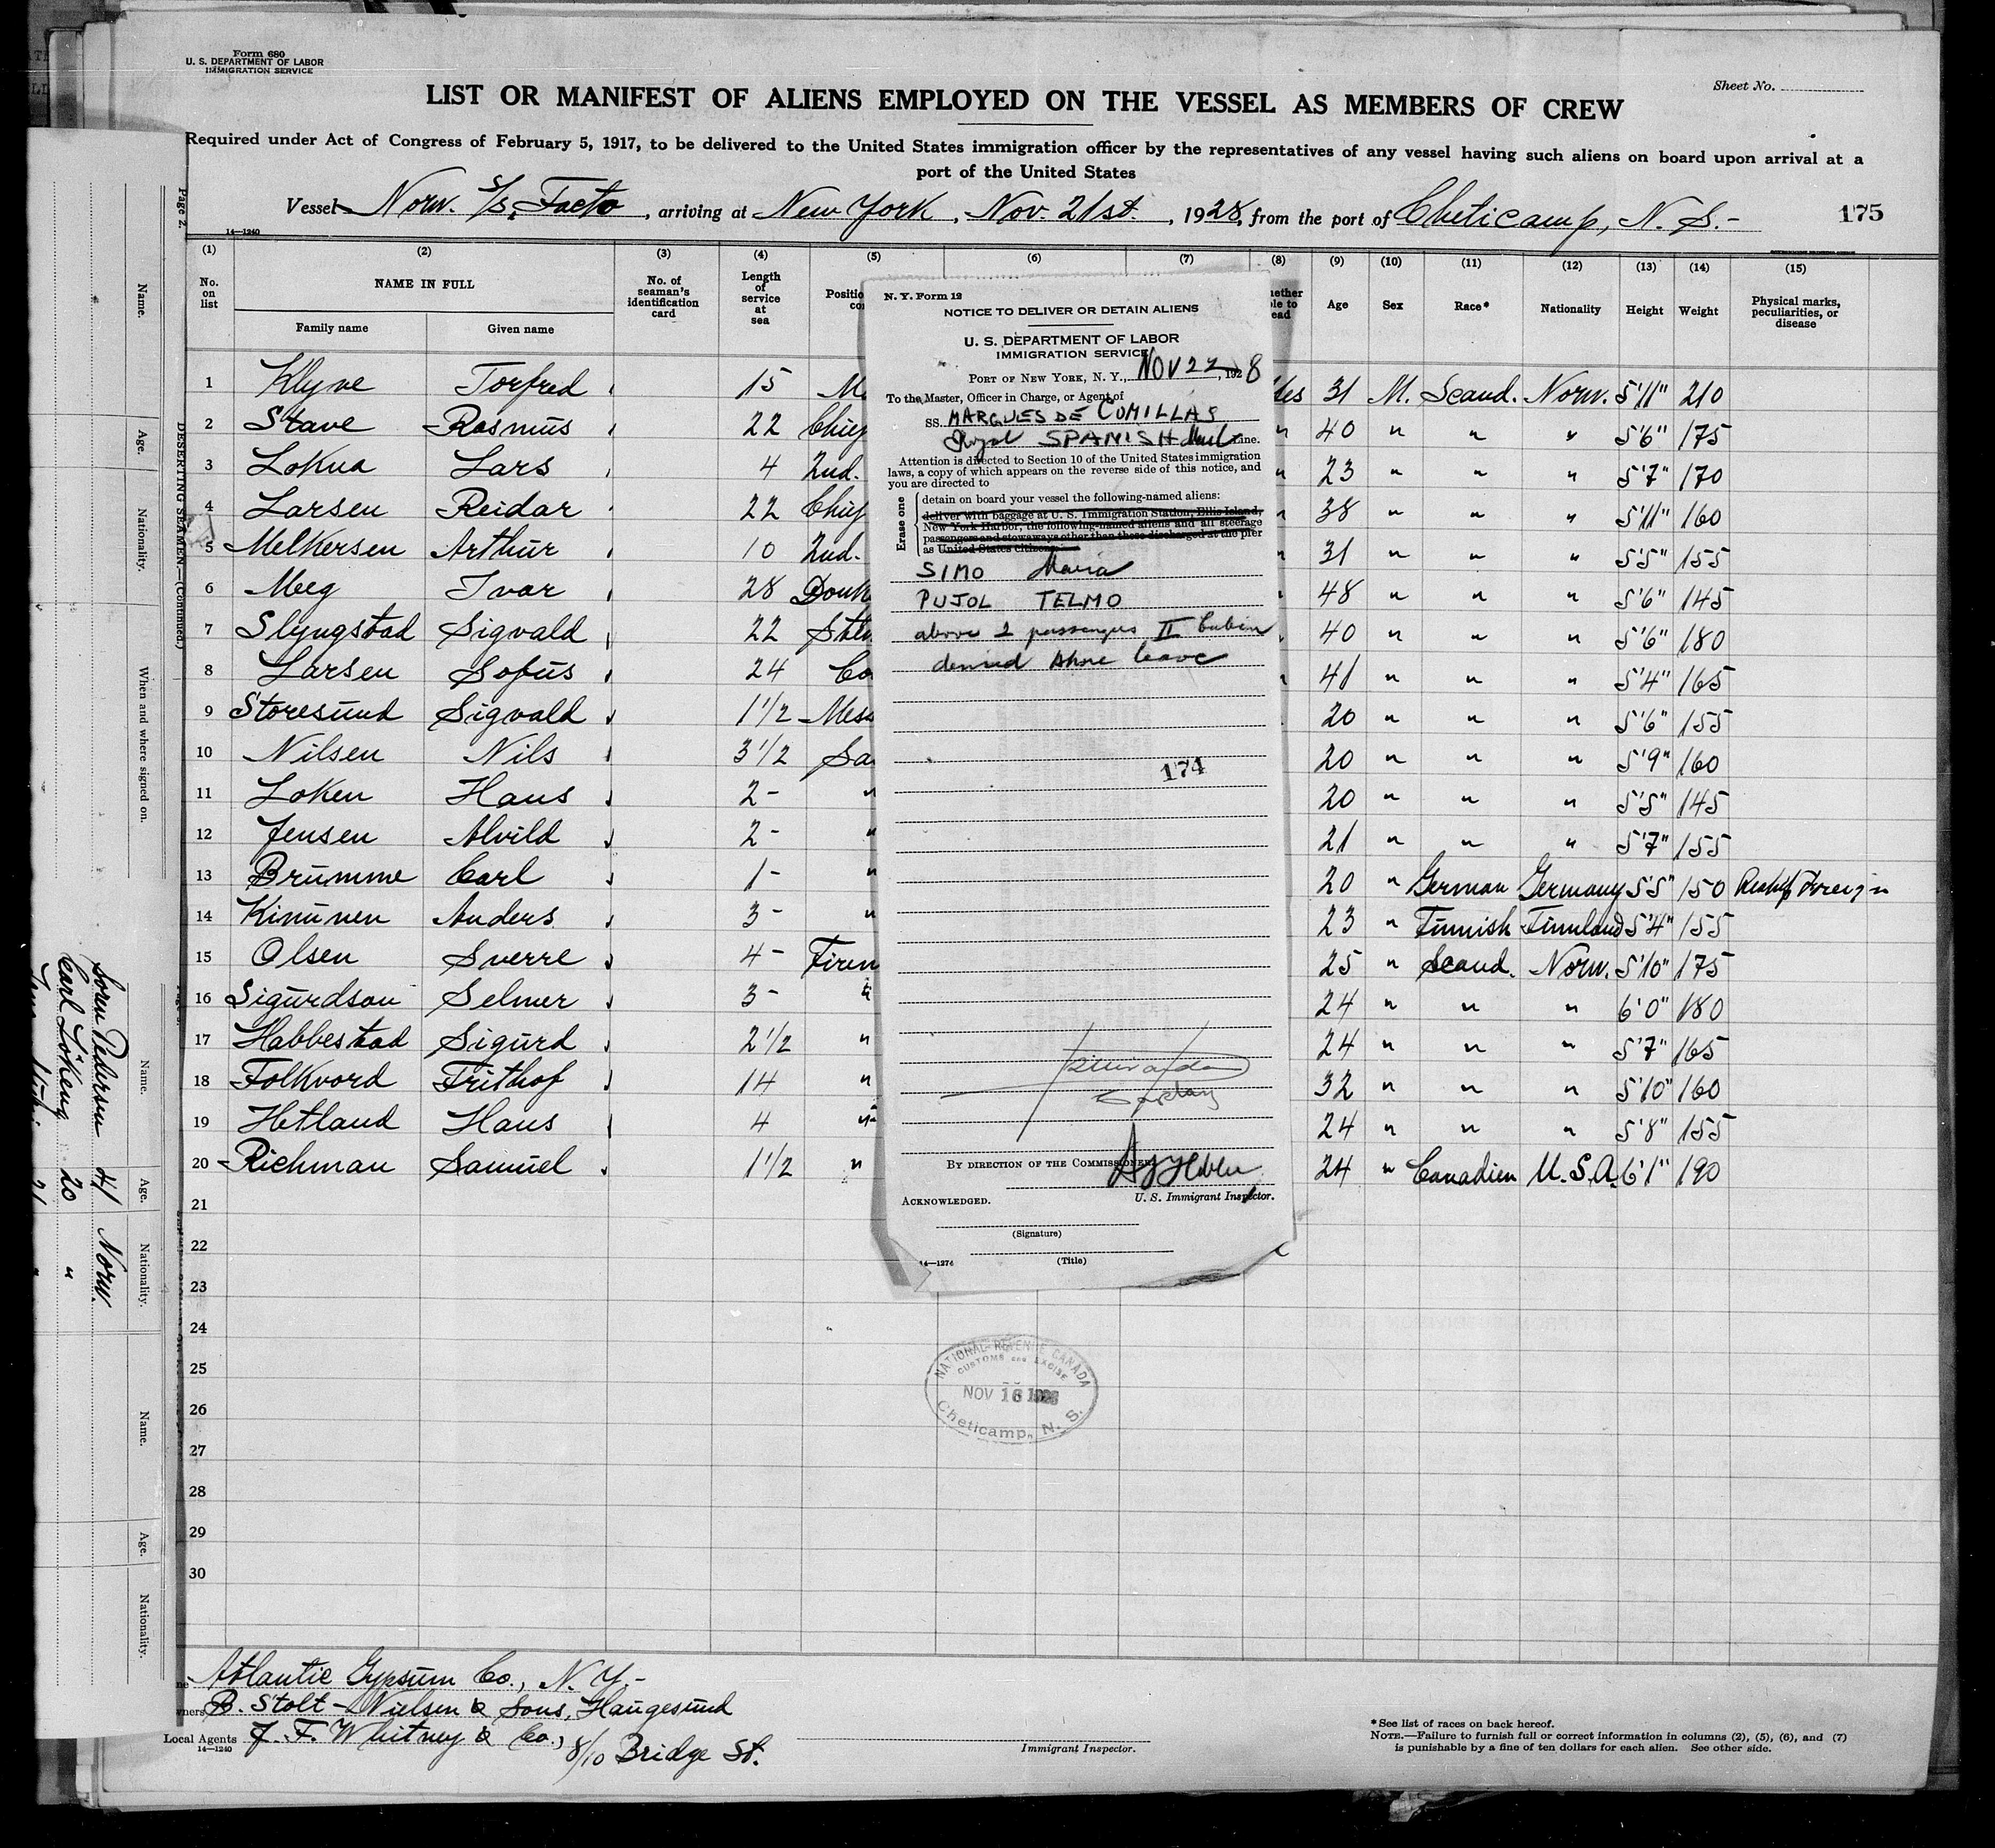 Form 680
U. S. DEPARTMENT OF LABOR
IMMIGRATION SERVICE
Sheet No.
LIST OR MANIFEST OF ALIENS EMPLOYED ON THE VESSEL AS MEMBERS OF CREW
Required under Act of Congress of February 5, 1917, to be delivered to the United States immigration officer by the representatives of any vessel having such aliens on board upon arrival at a
port of the United States
Vessel Norw. S/S. Facto, arriving at New York, Nov. 21st, 1928, from the port of Cheticamp, N. S.-
175
14—1240
(1) (2) (3) (4) (5) (6) (7) (8) (9) (10) (11) (12) (13) (14) (15)
No. on list
NAME IN FULL
Family name Given name
No. of seaman's identification card
Length of service at sea
Age Sex Race* Nationality Height Weight
Physical marks, peculiarities, or disease
1 Klyve Torfred 15 31 M. Scand. Norw. 5'11" 210
2 Stave Rasmus 22 Chief " 40 " " " 5'6" 175
3 Lokna Lars 4 2nd. " 23 " " " 5'7" 170
4 Larsen Reidar 22 Chief " 38 " " " 5'11" 160
5 Melkersen Arthur 10 2nd. " 31 " " " 5'5" 155
6 Meeg Ivar 28 Donk " 48 " " " 5'6" 145
7 Slyngstad Sigvald 22 40 " " " 5'6" 180
8 Larsen Sofus 24 Co " 41 " " " 5'4" 165
9 Storesund Sigvald 1 1/2 Mess 20 " " " 5'6" 155
10 Nilsen Nils 3 1/2 Sa 20 " " " 5'9" 160
11 Loken Hans 2- " 20 " " " 5'5" 145
12 Jensen Alvild 2- " 21 " " " 5'7" 155
13 Brumme Carl 1- " 20 " German Germany 5'5" 150
14 Kinunen Anders 3- " 23 " Finnish Finnland 5'4" 155
15 Olsen Sverre 4- Firem 25 " Scand. Norw. 5'10" 175
16 Sigurdson Selmer 3- " 24 " " " 6'0" 180
17 Habbestad Sigurd 2 1/2 " 24 " " " 5'7" 165
18 Folkvord Frithof 14 " 32 " " " 5'10" 160
19 Hetland Hans 4 " 24 " " " 5'8" 155
20 Richman Samuel 1 1/2 " 24 " Canadien U.S.A. 6'1" 190
21
22
23
24
25
26
27
28
29
30
N. Y. Form 12
NOTICE TO DELIVER OR DETAIN ALIENS
U. S. DEPARTMENT OF LABOR
IMMIGRATION SERVICE
PORT OF NEW YORK, N. Y., NOV 22, 1928
To the Master, Officer in Charge, or Agent of
SS. MARQUES DE COMILLAS
Royal SPANISH Mail Line.
Attention is directed to Section 10 of the United States immigration
laws, a copy of which appears on the reverse side of this notice, and
you are directed to
Erase one
detain on board your vessel the following-named aliens:
deliver with baggage at U. S. Immigration Station, Ellis Island,
New York Harbor, the following-named aliens and all steerage
passengers and stowaways other than those discharged at the pier
as United States citizens:
SIMO Maria
PUJOL TELMO
above 2 passengers II Cabin
denied shore leave
174
BY DIRECTION OF THE COMMISSIONER
U. S. Immigrant Inspector.
ACKNOWLEDGED.
(Signature)
(Title)
14—1274
NATIONAL REVENUE CANADA
CUSTOMS AND EXCISE
NOV 16 1928
Cheticamp, N. S.
Atlantic Gypsum Co., N. Y.-
B. Stolt-Nielsen & Sons, Haugesund
Local Agents J. F. Whitney & Co., 8/10 Bridge St.
14—1240
Immigrant Inspector.
*See list of races on back hereof.
NOTE.—Failure to furnish full or correct information in columns (2), (5), (6), and (7)
is punishable by a fine of ten dollars for each alien. See other side.
Page 2.
DESERTING SEAMEN.—(Continued)
Name. Age. Nationality. When and where signed on.
Name. Age. Nationality.
Name. Age. Nationality.
Soren Pedersen 41 Norw.
Carl Lökeng 20 "